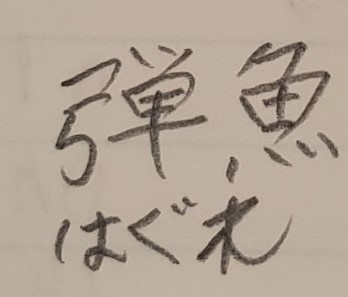 弾魚
はぐれ